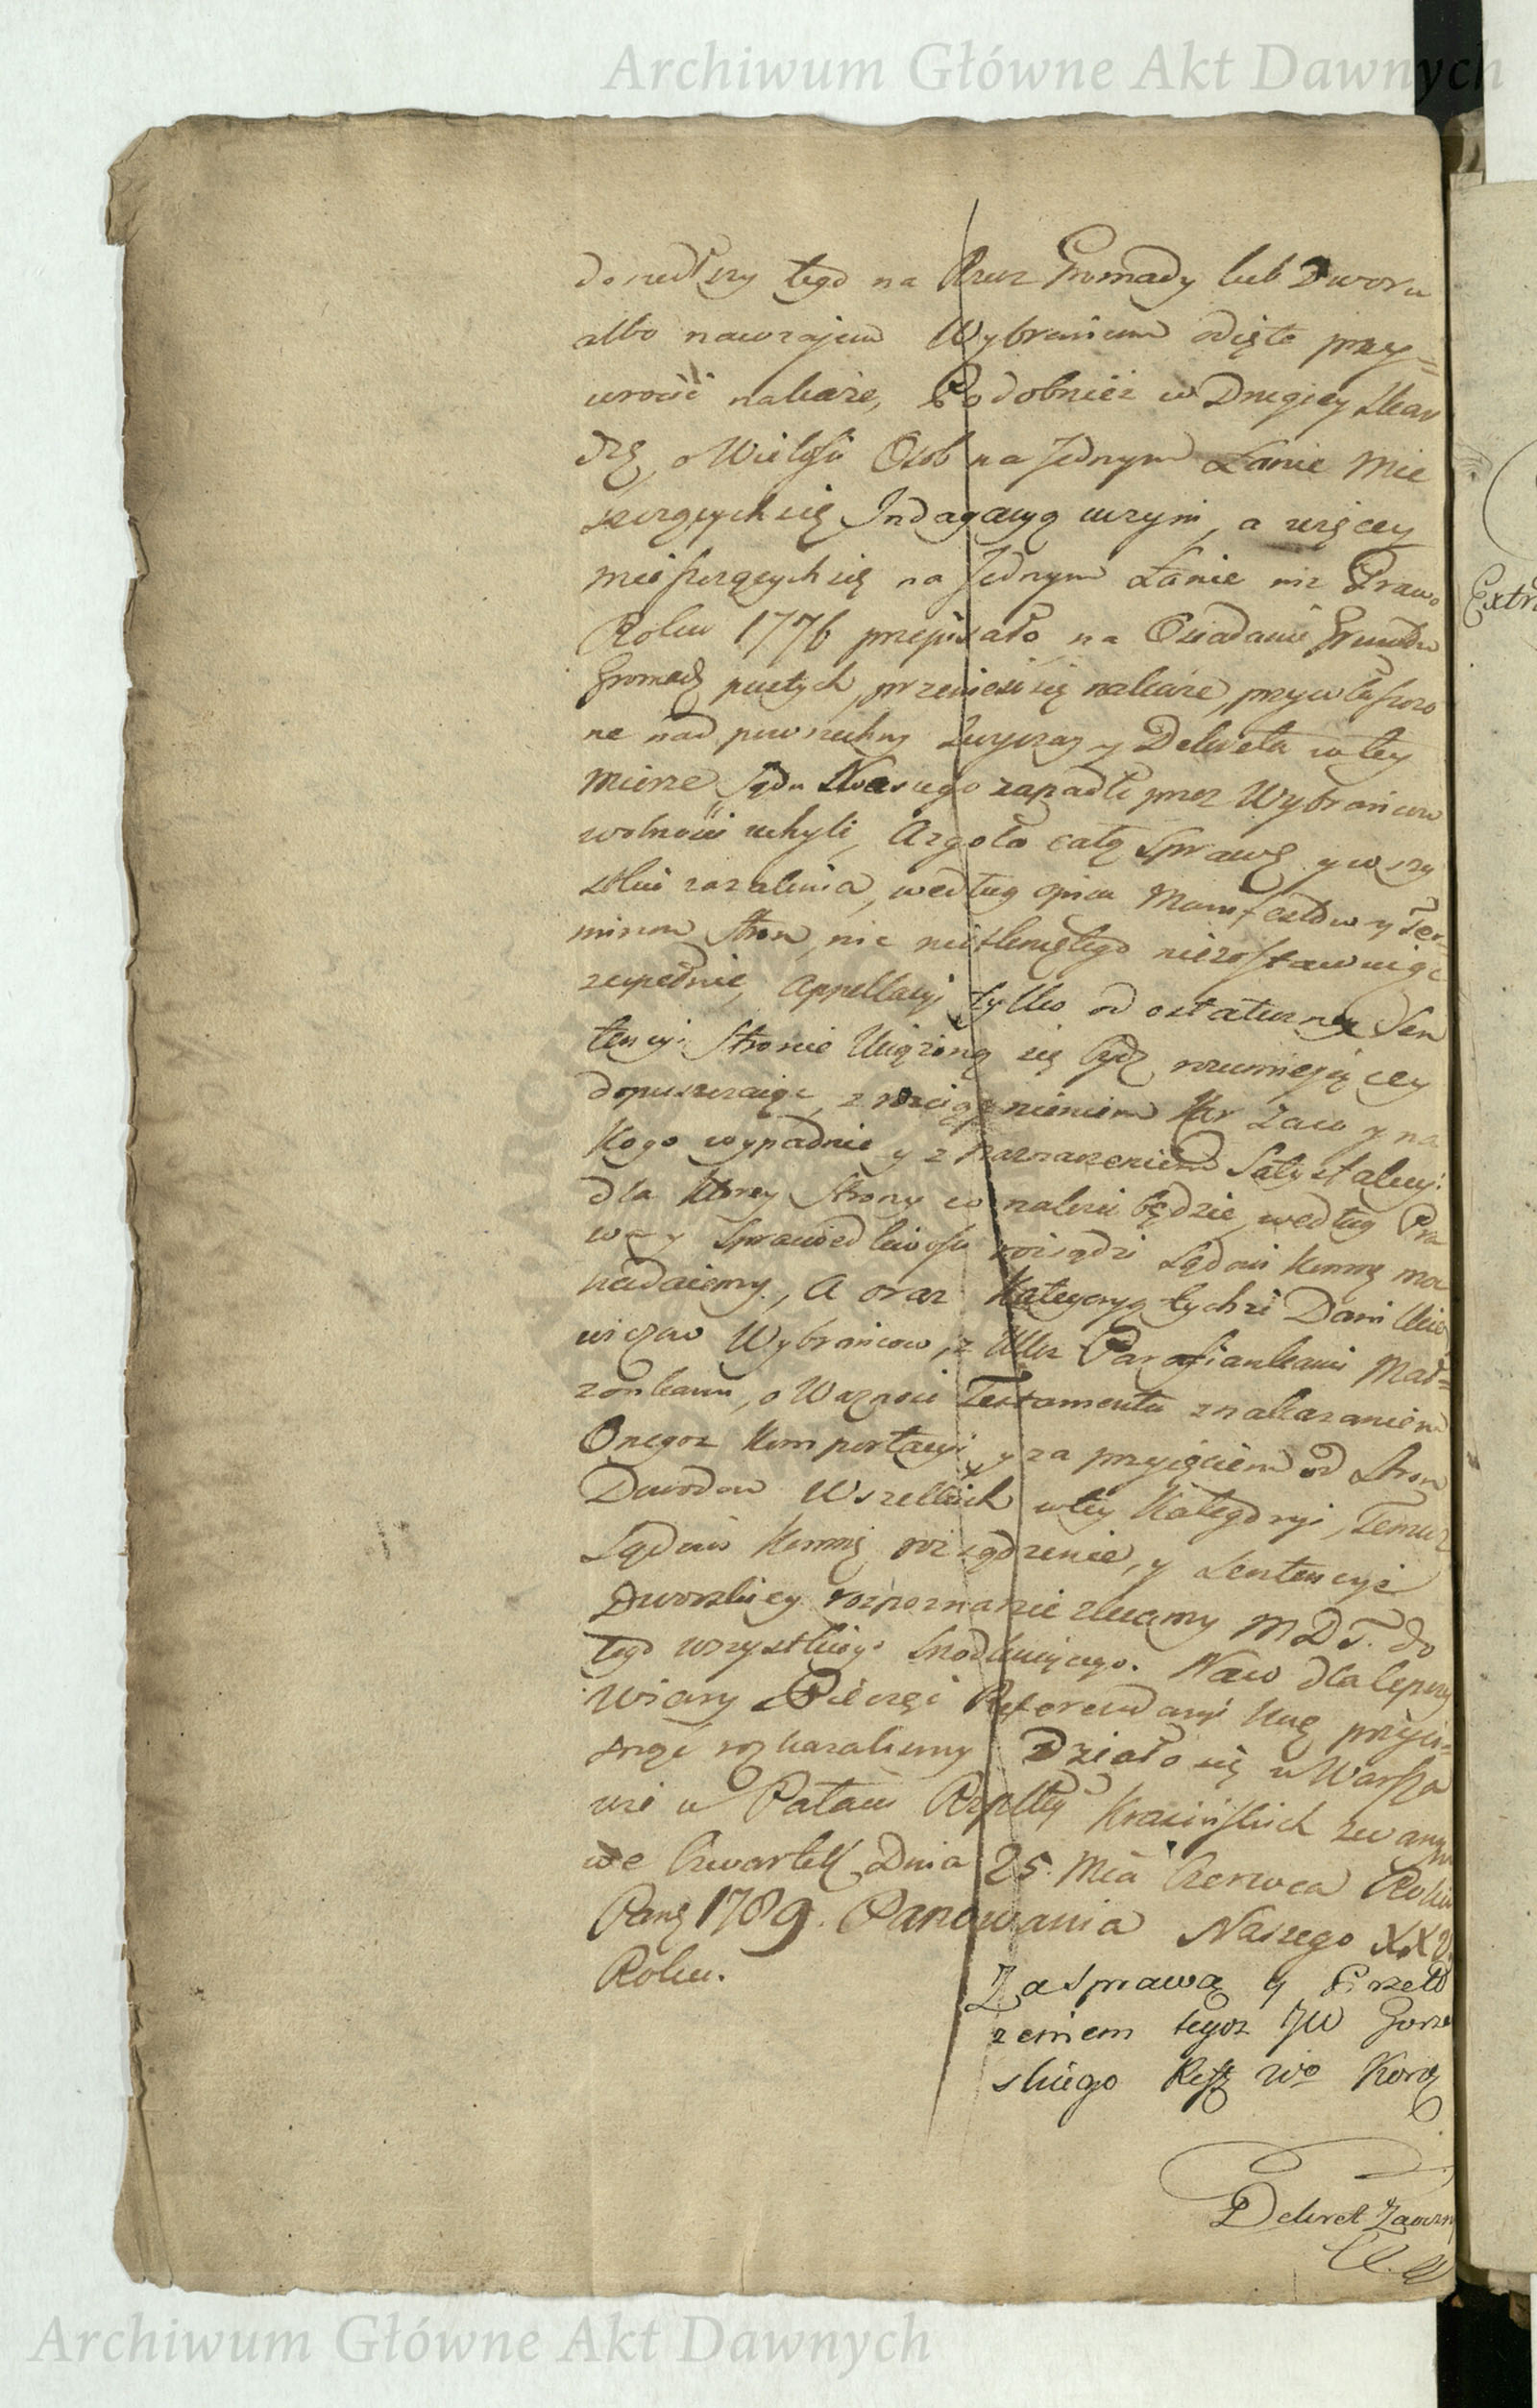 Archiwum Główne Akt Dawnych
doszedłszy tego na Rzecz Gromady lub Dworu
albo nawzajem Wybrańcom odięte przy=
wrócić nakaże, Podobnież w Drugiey Skar
dze, o Wielości Osob na Jednym Łanie Mie
szczących się Indagacyą uczyni, a więcey
mieszczących się na Jednym Łanie niż Prawo
Roku 1776 przepisało na Osiadanie Gruntów
Gromadz pustych przenieść się nakaże, przywłaszczo
ne nad powszechny Zwyczay y Dekreta w tey
mierze Sądu Naszego zapadłe przez Wybrańcow
wolności uchyli, Azgoła całą Sprawę y wszy
stkie zażalenia, według opisu Manifestow y Ter=
minow Stron, nic nietkniętego niezostawuiąc
zupełnie, Appellacyi tylko od ostateczney Sen
tencyi Stronie Uciążoną się bydź rozumiejącey
dopuszczaiąc, z rozciągnieniem Kar za co y na
Kogo wypadnie y z naznaczeniem Satysfakcyi
dla Ktorey Strony co należeć będzie, według Pra
wa y Sprawiedliwości rosądzi Sądowi Kommę ma
kazaiemy, A oraz Kategoryą tychże Danilkie
wiczow Wybrańcow, z Parafiankami Mał=
żonkami, o Ważność Testamentu z nakazaniem
Onegoż Komportacyi y za przyięciem od Stron
Dowodow Wszelkich w tey Kategoryi, Temuż
Sądowi Kommę rozsądzenie, y Sentencyi
Dworskiey rozpoznanie zlecamy M D T. do
tego wszystkiego Srodkuiącego. Na co dla lepszey
Wiary Pieczęć Referendaryi Kor przyci=
snąć rozkazaliśmy Działo się w Warsza
wie w Pałacu Rzpltey Krasińskich zwanym
we Czwartek Dnia 25. Mca Czerwca Roku
Pang 1789. Panowania Naszego XXV.
Roku.
Za sprawą y Przeło
żeniem tegoż JW Gorze
skiego Reffź Wo Korq
Dekret Zaoczn
Extr
Archiwum Główne Akt Dawnych